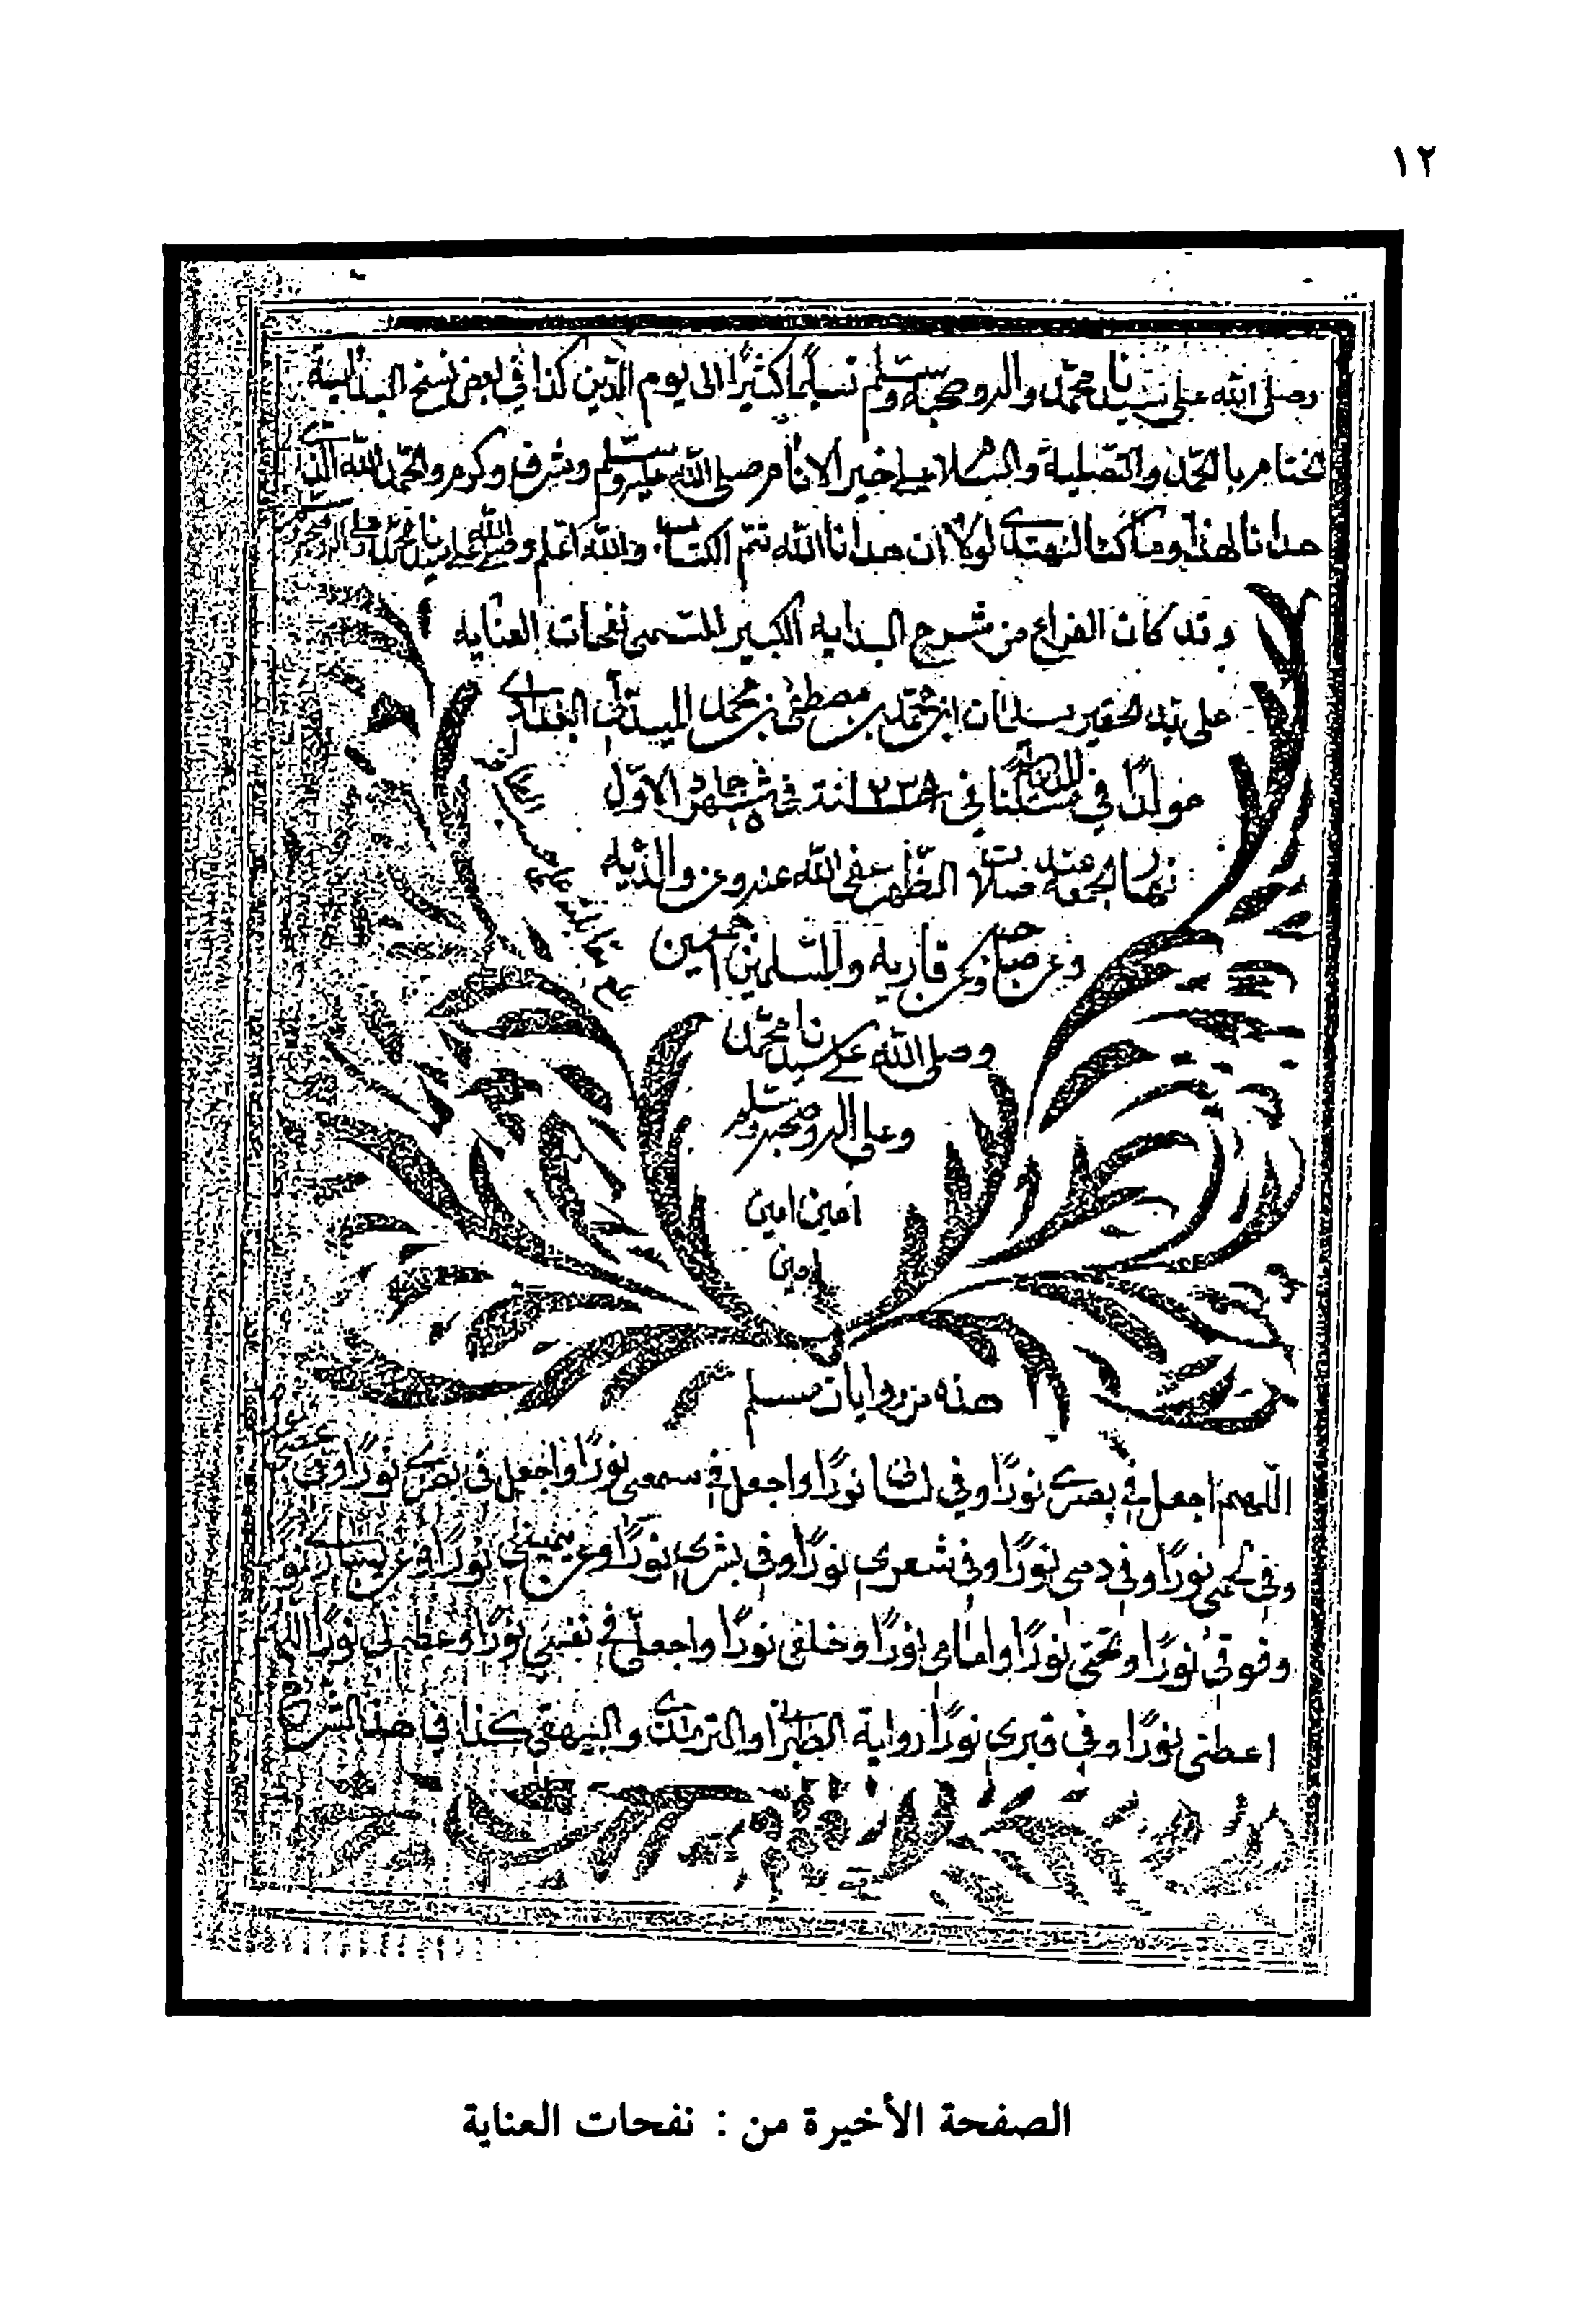 ١٢
وصلى الله على سيدنا محمد واله وصحبه وسلم تسليما كثيرًا الى يوم الدين كذا في بعض نسخ البداية
بالحمد والتصلية والسلام على خير الانام صلى الله عليه وسلم وشرف وكرم والحمد لله الذي
هدانا لهذا وما كنا لنهتدي لولا ان هدانا الله تتم الكتاب والله اعلم وصلى الله على سيدنا محمد
وقد كان الفراغ من شرح البداية الكبير المسمى نفحات العناية
على يد الحقير سليمان ابن محمد بن مصطفى بن محمد
مولدًا في ١٢٣٨ الاول
نهار الجمعة عند صلاة الظهر عفى الله عنه وعن والديه
وعن قاريه والمسلمين اجمعين
وصلى الله على سيدنا محمد
وعلى اله وصحبه وسلم
امين امين
امين
هذه من روايات مسلم
اللهم اجعل في بصري نورًا وفي لساني نورًا واجعل في سمعي نورًا واجعل في بصري نورًا وفي
وفي لحمي نورًا وفي دمي نورًا وفي شعري نورًا وفي بشري نورًا وعن يميني نورًا وعن يساري نو
وفوقي نورًا وتحتي نورًا وامامي نورًا وخلفي نورًا واجعل في نفسي نورًا وعظم لي نورًا
اعطني نورًا وفي قبري نورًا رواية والترمذي والبيهقي كذا في هذا الشرح
الصفحة الأخيرة من : نفحات العناية